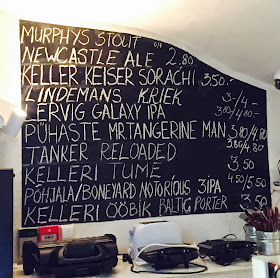 MURPHYS STOUT
NEWCASTLE ALE 2.80
KELLER KEISER SORACHI 3,50.-
LINDEMANS KRIEK 3-/4.-
LERVIG GALAXY IPA 3.80/4.80.-
PÜHASTE MR.TANGERINE MAN 3.80/4.80
TANKER RELOADED 3.80/4.80
KELLERI TUME 3,50
PÕHJALA/BONEYARD NOTORIOUS 3IPA 4.50/5.50
KELLERI ÖÖBIK BALTIC PORTER 3,50